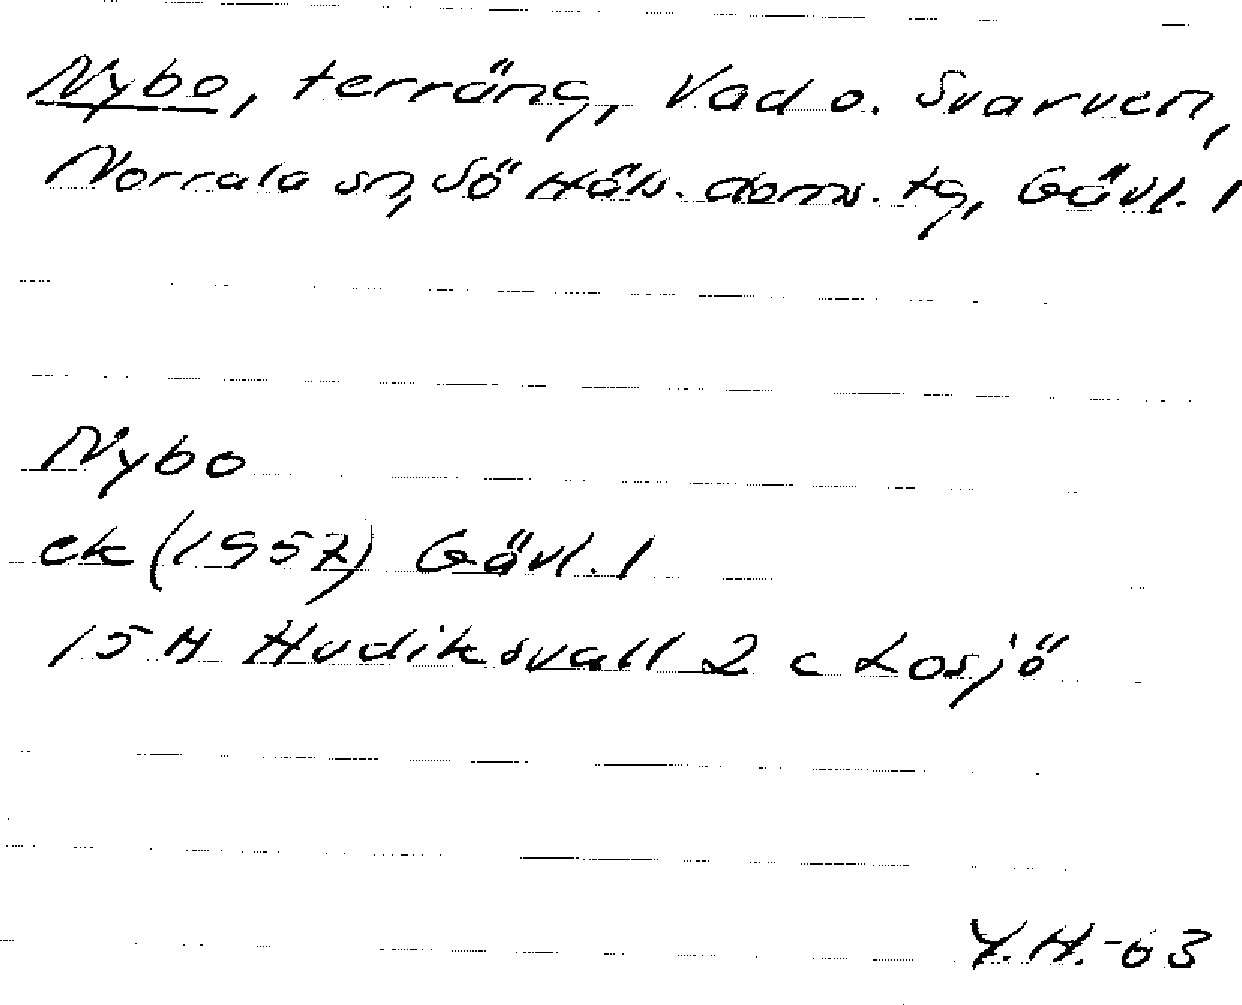 Nybo, terräng, Vad o. Svarven,
Norrala sn, Sö Häls. doms. tg, Gävl. l
Nybo
ek (1957) Gävl. l
15 H Hudiksvall 2 c Losjö
Y.H.-63